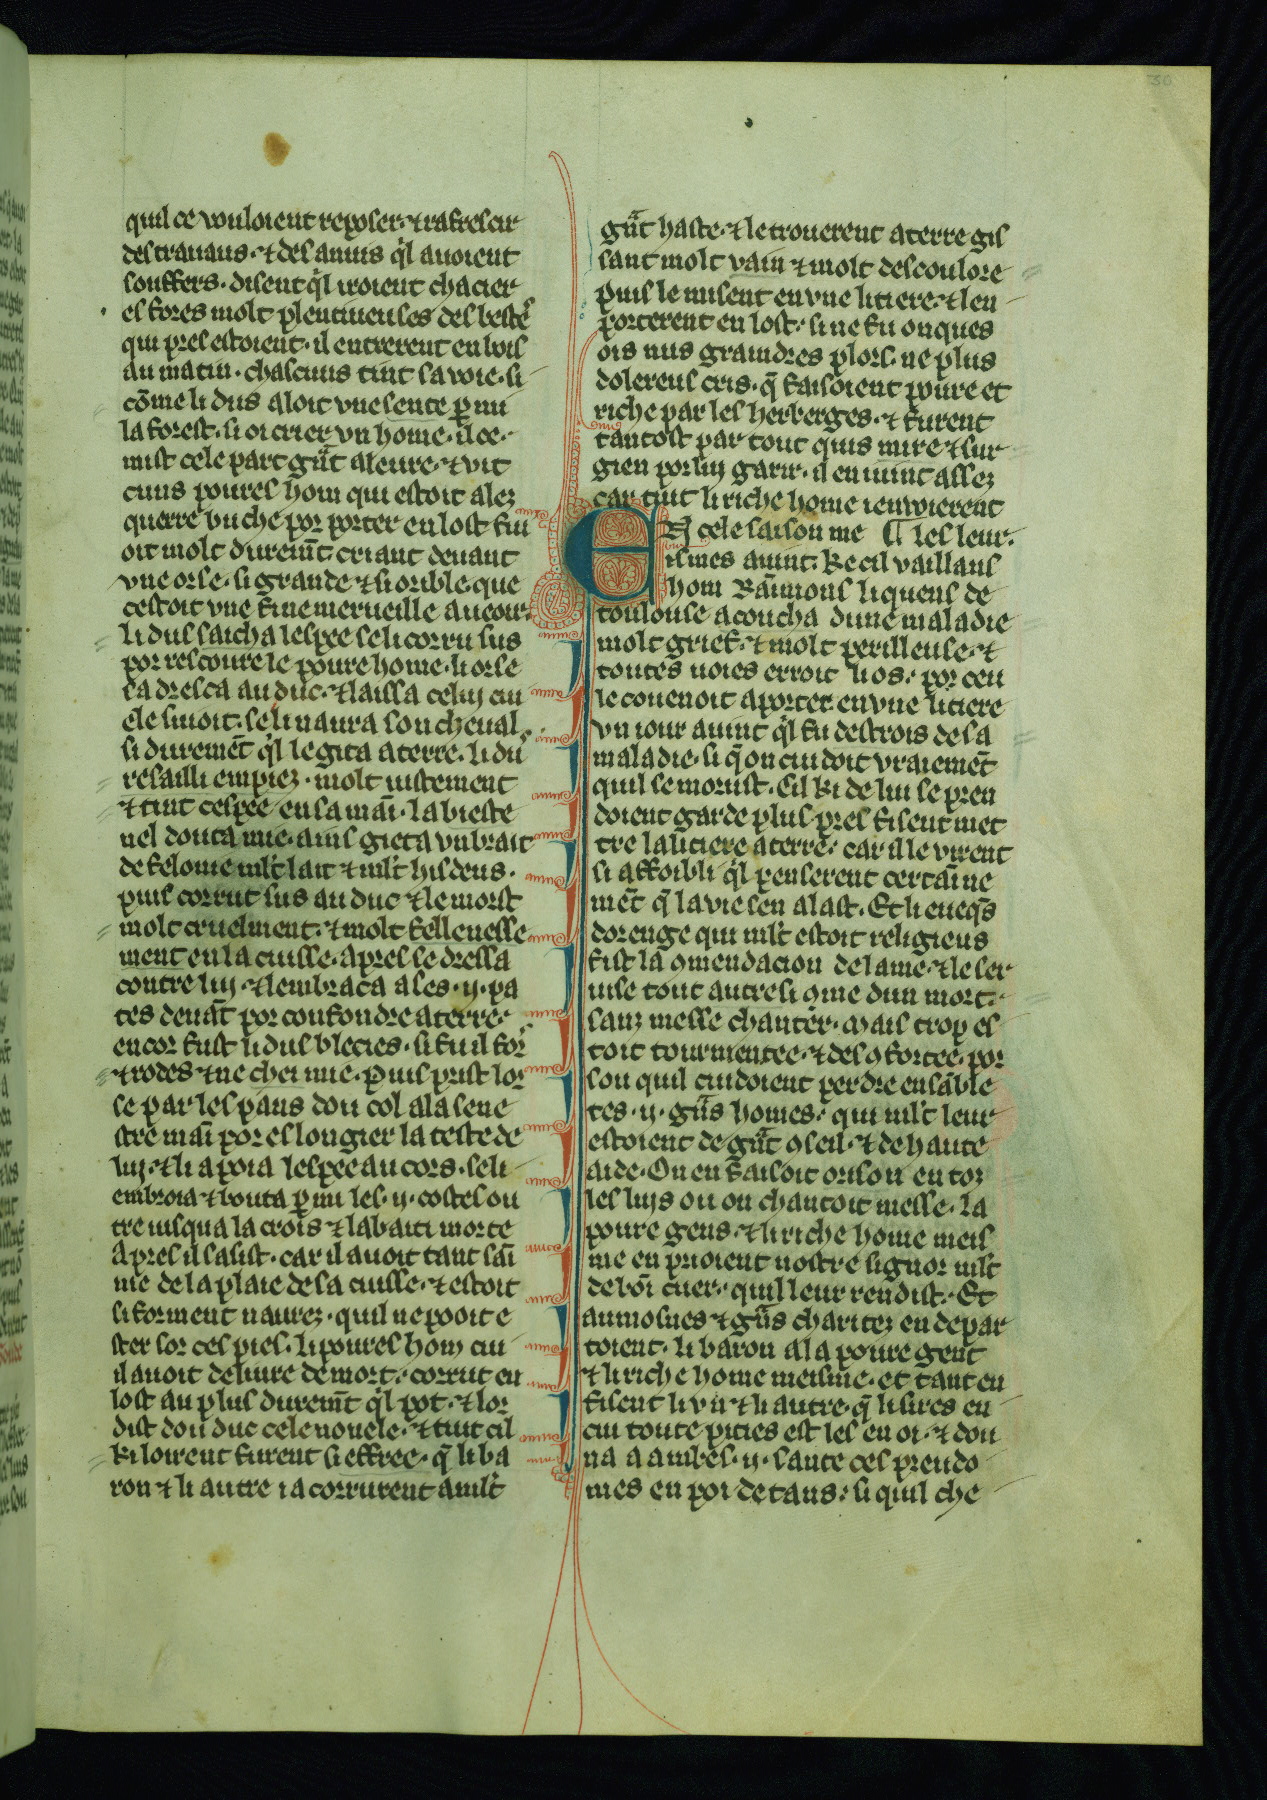 quil ce vouloient reposer. ⁊ rafrescir
des travaus. ⁊ des anuis ql avoient
souffers. disent ql iroient chacier
es fores molt plentiueuses des bestes
qui pres estoient. il entrerent en bois
au matin. chascuns tint sa voie. si
cōme li dus aloit vne sente p mi
la forest. si oi crier vn home. il ce
mist cele part gūt aleure. ⁊ vit
cuns poures hom qui estoit alez
querre buche por porter en lost fui
oit molt duremt criant deuant
vne orse. si grande ⁊ si orible. que
cestoit vne fine merueille aueoir.
li dus saicha lespee se li corru sus
por rescoure le poure home. li orse
sa dresca au duc. ⁊ laissa celuj cui
ele siuoit. se li naura son cheual
si duremēt ql le gita a terre. li du
resailli empiez. molt uistement
⁊ tint cespee en sa mai. la bieste
nel douta mie. ains gieta vn brait
de felonie mlt lait ⁊ mlt hisdeus.
puis corrut sus au duc ⁊ le morst
molt cruelment. ⁊ molt felleuesse
ment en la cuisse. apres se dressa
contre luj. ⁊ lembraca a ses .ij. pa
tes deuāt por confondre a terre.
encor fust li dus blecies. si fu il for
⁊ rodes ⁊ ne chei mie. Puis prist lor
se par les pans dou col a la sene
stre mai por eslongier la teste de
luj. ⁊ li apoia lespee au cors. se li
embroia ⁊ bouta p mi les .ij. costes ou
tre iusqua la crois ⁊ labati morte
Apres il sasist. car il auoit tant sai
nie de la plaie de sa cuisse. ⁊ estoit
si forment naurez. quil ne pooit e
ster sor ces pies. li poures hom cui
il auoit deliure de mort. corrut en
lost au plus duremt ql pot. ⁊ lor
dist dou duc cele nouele. ⁊ tuit cil
ki loirent furent si effree. q li ba
ron ⁊ li autre i a corrurent a mlt
gūt haste. ⁊ le trouerent a terre gis
sant molt vain ⁊ molt descoulore
puis le misent en vne litiere. ⁊ len
porterent en lost. si ne fu onques
ois nus graindres plors. ne plus
dolereus cris. q faisoient poure et
riche par les herberges. ⁊ furent
tantost par tout quis mire ⁊ sur
gien por luj garir. il en uint assez
car tuit li riche home i enuoierent
EN cele saison me ¶ les leur.
ismes auint. ke cil vaillans
hom Raimons li quens de
toulouse acoucha dune maladie
molt grief. ⁊ molt perilleuse. ⁊
toutes uoies erroit li os. por ceu
le couenoit a porter en vne litiere
vn iour auint ql fu destrois de sa
maladie. si q on cuidoit vraiemēt
quil se morust. Cil ki de lui se pren
doient garde plus pres fisent met
tre la liciere a terre. car il le virent
si affoibli ql penserent certaine
mēt q la vie sen alast. Et li eueqs
dorenge qui mlt estoit religieus
fist la 9mendacion de lame. ⁊ le ser
uise tout autresi 9me dun mort.
sanz messe chanter. Mais trop es
toit tourmentee. ⁊ des9fortee. por
sou quil cuidoient perdre ensāble
tes .ij. gūs homes. qui mlt leur
estoient de gūt 9seil. ⁊ de haute
aide. On en faisoit orison en toz
les lius ou on chantoit messe. la
poure gens. ⁊ li riche home meis
me en prioient nostre signor mlt
de boī cuer. quil leur rendist. Et
aumosnes ⁊ gūs charitez en depar
toient. li baron a la poure gent
⁊ li riche home meisme. et tant en
fisent li vn ⁊ li autre. q li sires en
cui toute pities est les en oi. ⁊ don
na a ambes .ij. sante ces preudo
mes en poi de tans. si quil che